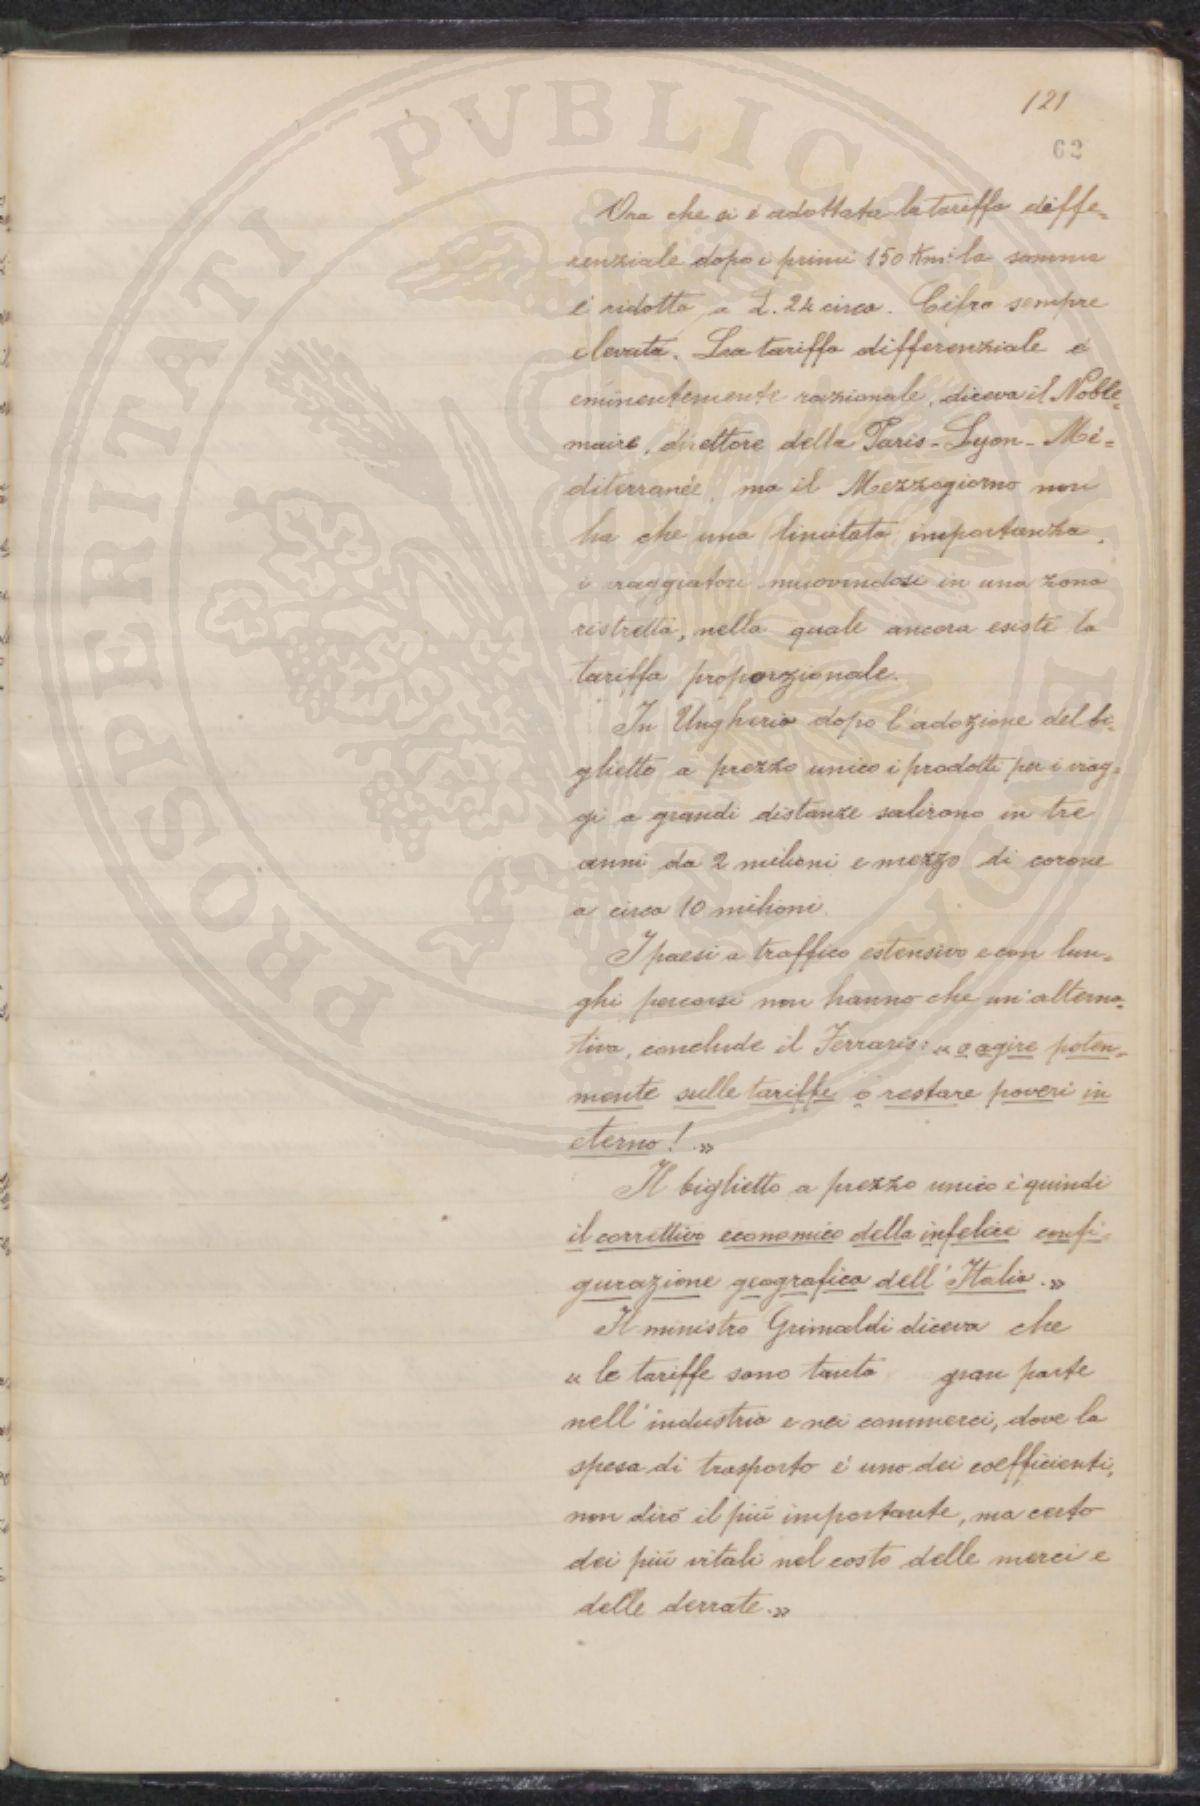 121
62
Ora che si è adottata la tariffa diffe=
renziale dopo i primi 150 Km: la somma
è ridotta a L. 24 circa. Cifra sempre
elevata. La tariffa differenziale è
eminentemente razionale, diceva il Noble=
maire, direttore della Paris-Lyon-Mé=
diterranée, ma il Mezzogiorno non
ha che una limitata importanza,
i viaggiatori muovendosi in una zona
ristretta, nella quale ancora esiste la
tariffa proporzionale.
In Ungheria dopo l'adozione del bi=
glietto a prezzo unico i prodotti per i viag=
gi a grandi distanze salirono in tre
anni da 2 milioni e mezzo di corone
a circa 10 milioni.
I paesi a traffico estensivo e con lun=
ghi percorsi non hanno che un'alterna=
tiva, conclude il Ferraris: « o agire poten=
mente sulle tariffe o restare poveri in
eterno! »
Il biglietto a prezzo unico è quindi
il correttivo economico della infelice confi=
gurazione geografica dell'Italia. »
Il ministro Grimaldi diceva che
« le tariffe sono tanta gran parte
nell'industria e nei commerci, dove la
spesa di trasporto è uno dei coefficienti,
non dirò il più importante, ma certo
dei più vitali nel costo delle merci e
delle derrate. »
PROSPERITATI PVBLICAE